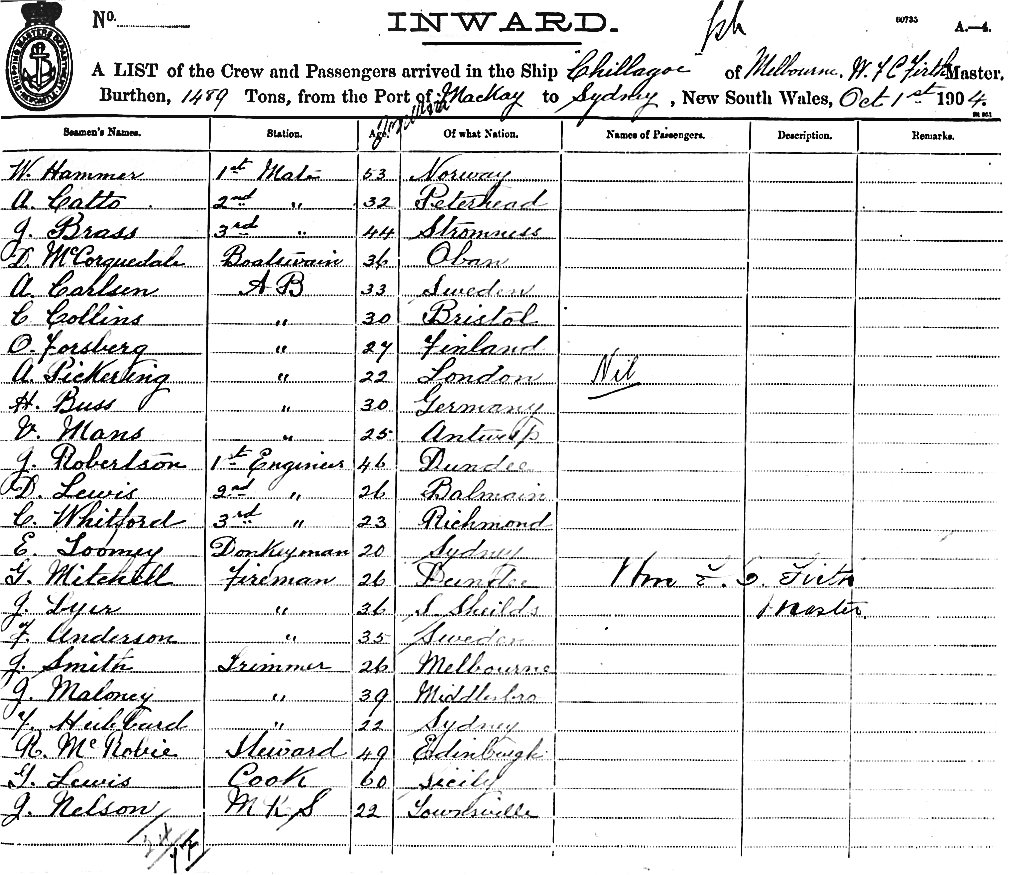 No.
INWARD.
60735
A.—4.
A LIST of the Crew and Passengers arrived in the Ship Chillagoe of Melbourne, W. F C Firth Master,
Burthen, 1489 Tons, from the Port of Mackay to Sydney, New South Wales, Oct 1st 1904.
Seamen's Names. Station. Age. Of what Nation. Names of Passengers. Description. Remarks.
W. Hammer 1st Mate 53 Norway
A. Catto 2nd " 32 Peterhead
J. Brass 3rd " 44 Stromness
D. McCorquedale Boatswain 36 Oban
A. Carlsen A B 33 Sweden
C Collins " 30 Bristol
O. Forsberg " 27 Finland
A. Pickering " 22 London Nil
H. Buss " 30 Germany
V. Mans " 25 Antwerp
J. Robertson 1st Engineer 46 Dundee
D. Lewis 2nd " 26 Balmain
C. Whitford 3rd " 23 Richmond
E. Toomey Donkeyman 20 Sydney
G. Mitchell Fireman 26 Dundee Wm F. C. Firth
J. Dyer " 36 S Sheilds Master
F. Anderson " 35 Sweden
J. Smith Trimmer 26 Melbourne
J. Maloney " 39 Middlesbro
F. Hubbard " 22 Sydney
R. McRobie Steward 49 Edinburgh
G. Lewis Cook 60 Sicily
J. Nelson M K S 22 Townsville